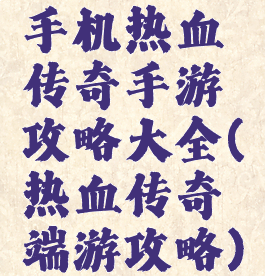 手机热血
传奇手游
攻略大全(
热血传奇
端游攻略)